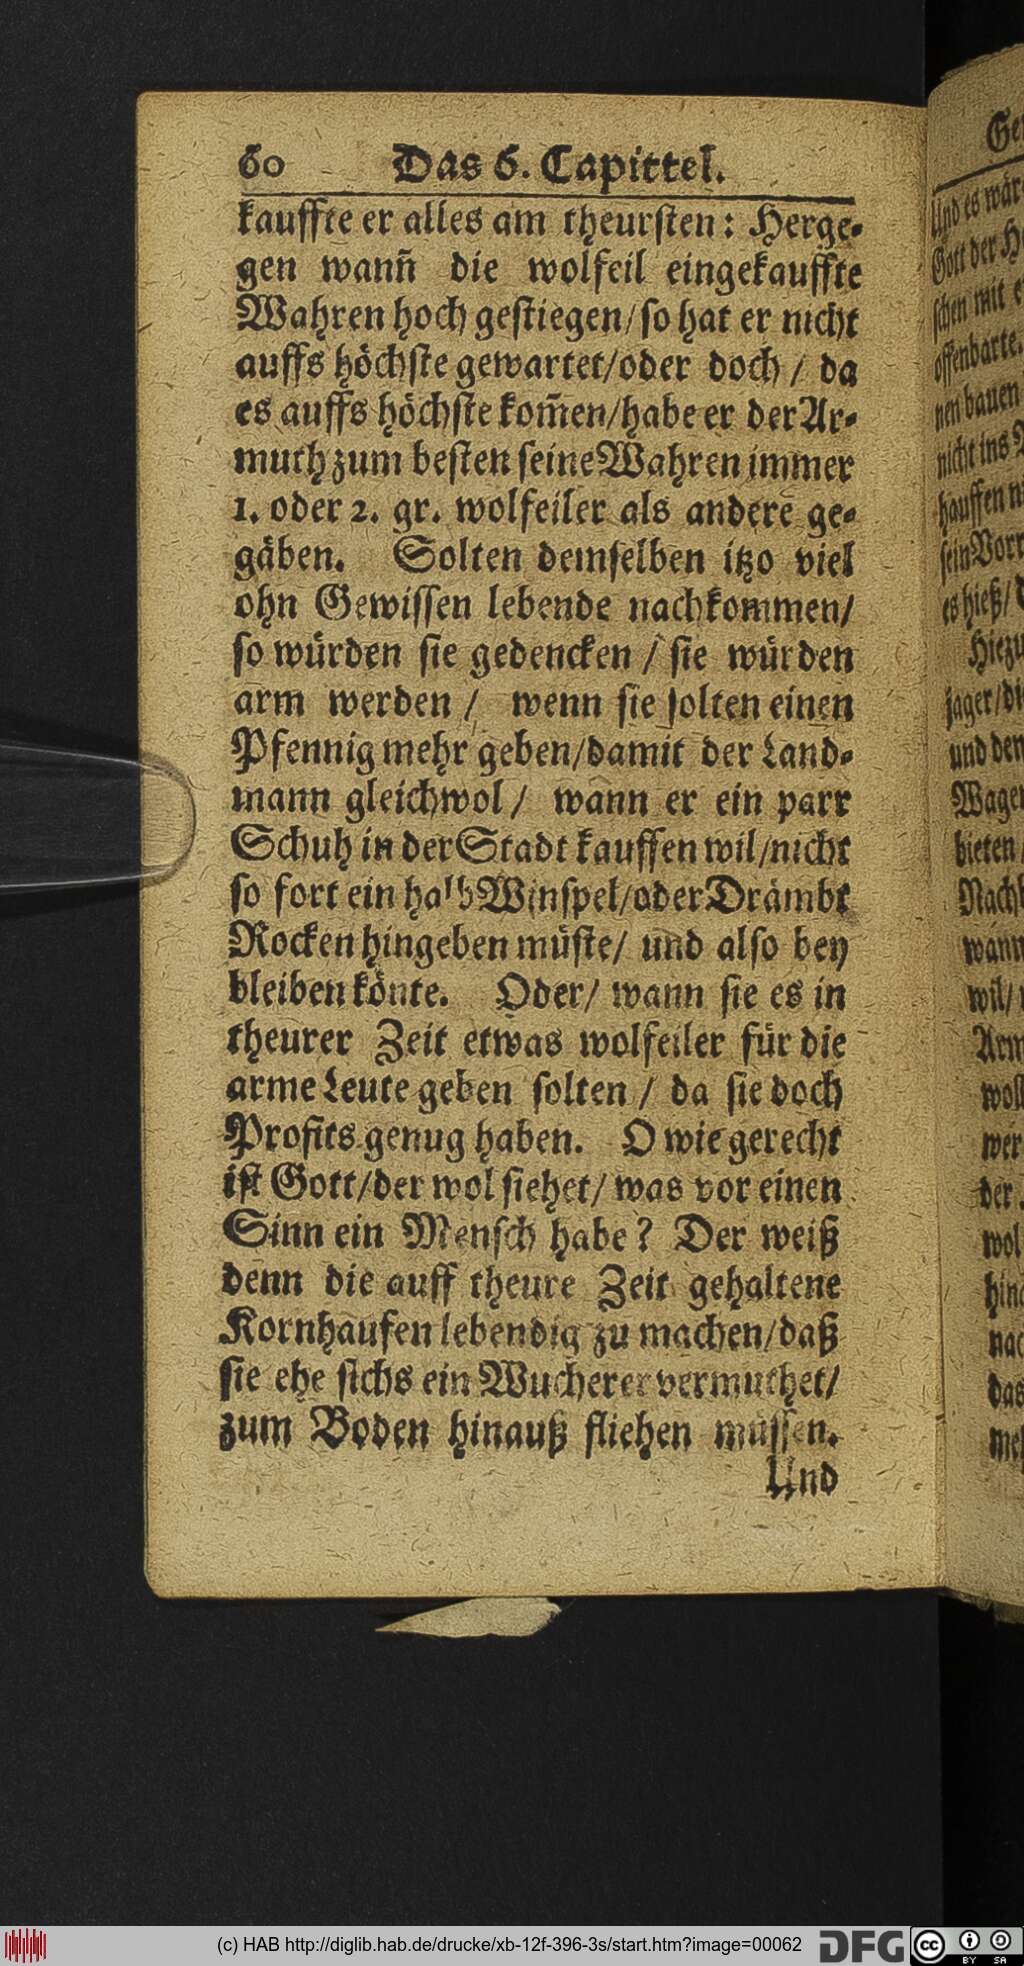 60 Das 6. Capittel.
kauffte er alles am theursten: Herge-
gen wañ die wolfeil eingekauffte
Wahren hoch gestiegen/so hat er nicht
auffs höchste gewartet/oder doch / da
es auffs höchste kom̃en/habe er der Ar-
muth zum besten seine Wahren immer
1. oder 2. gr. wolfeiler als andere ge-
gäben. Solten demselben itzo viel
ohn Gewissen lebende nachkommen/
so würden sie gedencken / sie würden
arm werden / wenn sie solten einen
Pfennig mehr geben/damit der Land-
mann gleichwol / wann er ein parr
Schuh in der Stadt kauffen wil/nicht
so fort ein halb Winspel/oder Drämbt
Rocken hingeben müste/ und also bey
bleiben könte. Oder/ wann sie es in
theurer Zeit etwas wolfeiler für die
arme Leute geben solten / da sie doch
Profits genug haben. O wie gerecht
ist Gott/der wol siehet/ was vor einen
Sinn ein Mensch habe? Der weiß
denn die auff theure Zeit gehaltene
Kornhaufen lebendig zu machen/daß
sie ehe sichs ein Wucherer vermuthet/
zum Boden hinauß fliehen müssen.
Und
Und es wär
Gott der
schen mit
offenbarte.
nen bauen
nicht ins
hauffen
sein Vorr
es hieß/
Hiezu
jager/di
und den
Wage
bieten
Nach
wann
wil/
Arm
wol
wer
der
wol
hin
nac
das
(c) HAB http://diglib.hab.de/drucke/xb-12f-396-3s/start.htm?image=00062
DFG
cc
BY SA